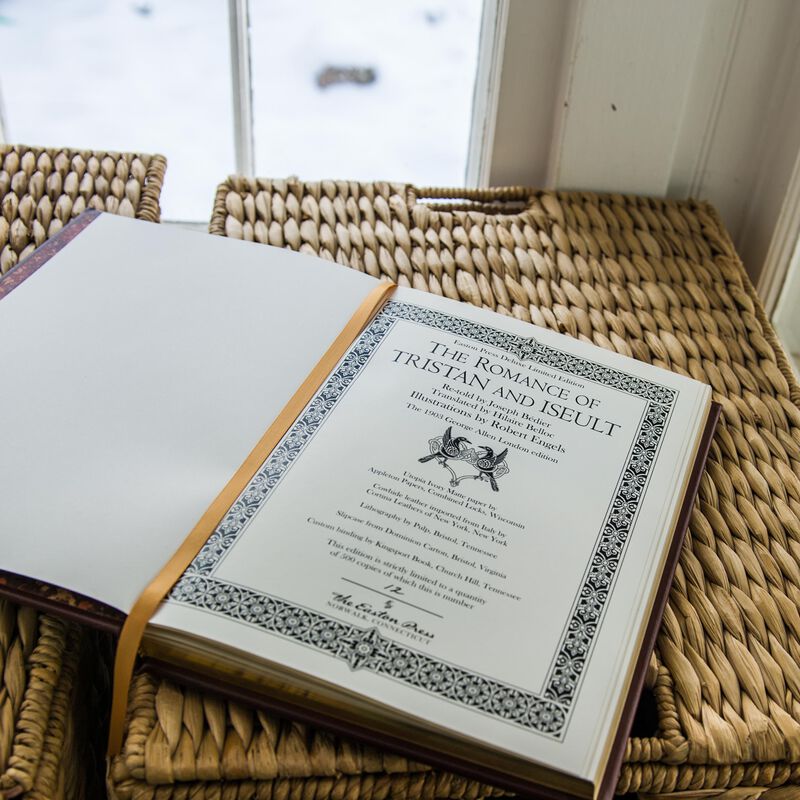 Easton Press Deluxe Limited Edition
THE ROMANCE OF
TRISTAN AND ISEULT
Re-told by Joseph Bédier
Translated by Hilaire Belloc
Illustrations by Robert Engels
The 1903 George Allen London edition
Utopia Ivory Matte paper by
Appleton Papers, Combined Locks, Wisconsin
Cowhide leather imported from Italy by
Cortina Leathers of New York, New York
Lithography by Pulp, Bristol, Tennessee
Slipcase from Dominion Carton, Bristol, Virginia
Custom binding by Kingsport Book, Church Hill, Tennessee
This edition is strictly limited to a quantity
of 500 copies of which this is number
12
by
The Easton Press
NORWALK, CONNECTICUT